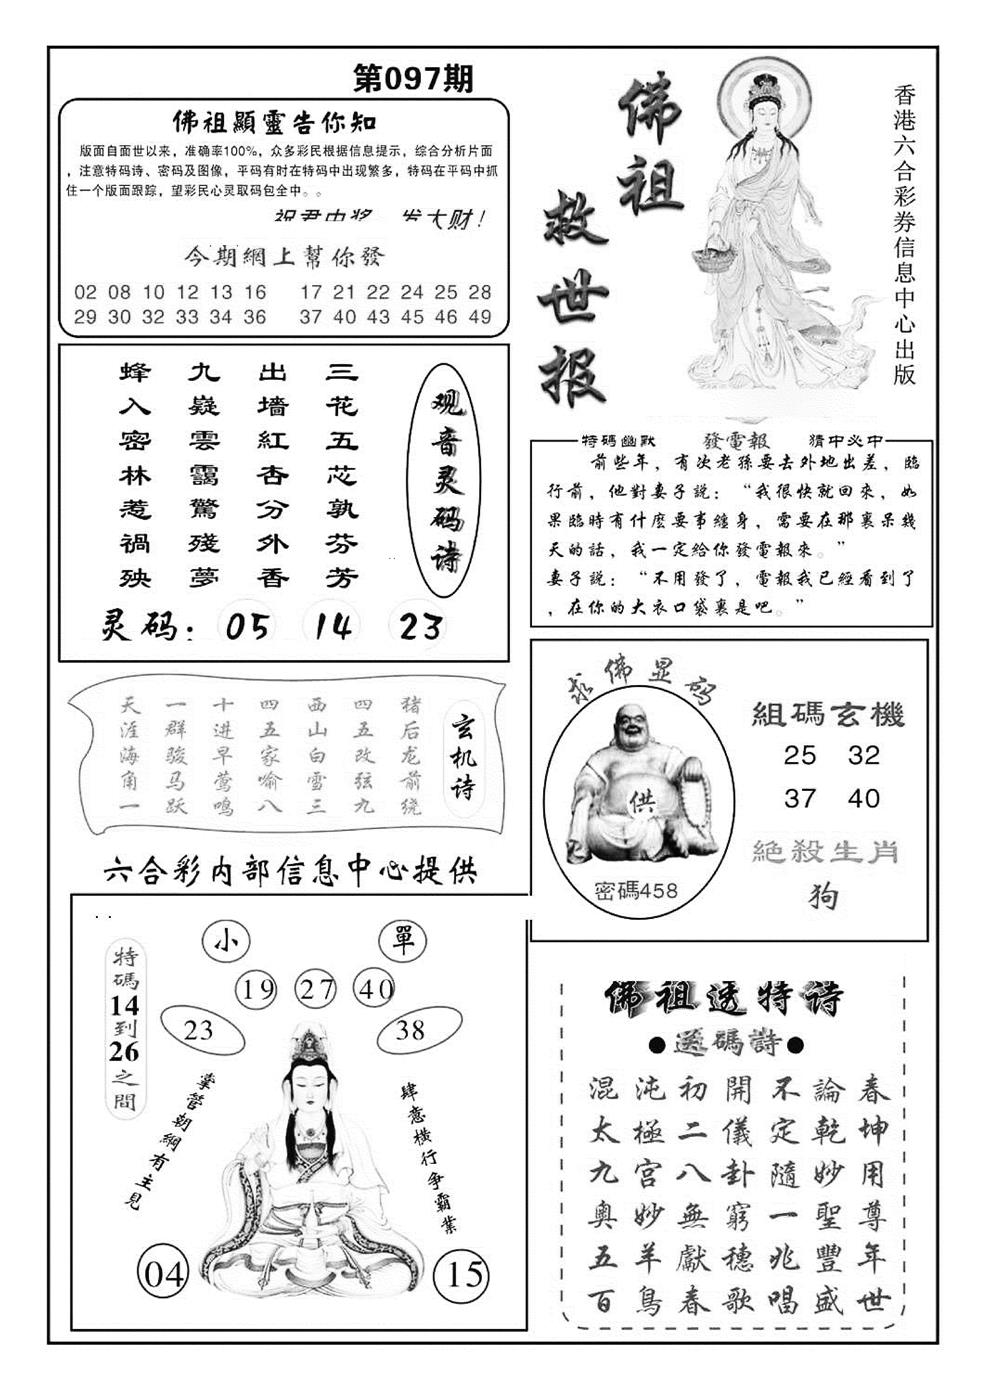 第097期
佛祖顯靈告你知
版面自面世以来，准确率100%，众多彩民根据信息提示，综合分析片面
，注意特码诗、密码及图像，平码有时在特码中出现繁多，特码在平码中抓
住一个版面跟踪，望彩民心灵取码包全中。。
祝君中奖 发大财！
今期網上幫你發
02 08 10 12 13 16 17 21 22 24 25 28
29 30 32 33 34 36 37 40 43 45 46 49
佛祖
救世报
香港六合彩券信息中心出版
观音灵码诗
三花五芯孰芬芳
出墙紅杏分外香
九嶷雲靄驚殘夢
蜂入密林惹禍殃
灵码：05 14 23
特碼幽默 發電報 猜中必中
前些年，有次老孫要去外地出差，臨
行前，他對妻子說：“我很快就回來，如
果臨時有什麽要事纏身，需要在那裏呆幾
天的話，我一定給你發電報來。”
妻子説：“不用發了，電報我已經看到了
，在你的大衣口袋裏是吧。”
玄机诗
猪后龙前绕
四五改弦九
西山白雪三
四五家喻八
十进早莺鸣
一群骏马跃
天涯海角一
求佛显码
供
密碼458
組碼玄機
25 32
37 40
絕殺生肖
狗
六合彩内部信息中心提供
特碼14到26之間
小 單
19 27 40
23 38
掌管朝綱有主見
肆意橫行争霸業
04 15
佛祖透特诗
●送碼詩●
混沌初開不論春
太極二儀定乾坤
九宮八卦隨妙用
奥妙無窮一聖尊
五羊獻穗兆豐年
百鳥春歌唱盛世